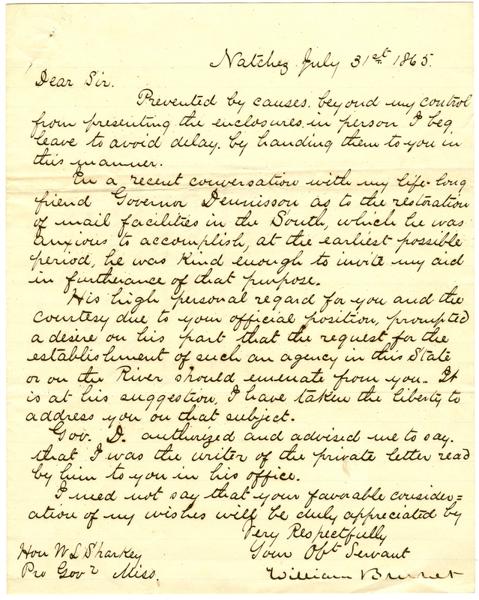 Natchez July 31st 1865.
Dear Sir.
Prevented by causes beyond my control
from presenting the enclosures in person I beg
leave to avoid delay by handing them to you in
this manner.
In a recent conversation with my life-long
friend Governor Dennisson as to the restoration
of mail facilities in the South, which he was
anxious to accomplish, at the earliest possible
period, he was kind enough to invite my aid
in furtherance of that purpose.
His high personal regard for you and the
courtesy due to your official position, prompted
a desire on his part that the request for the
establishment of such an agency in this State
or on the River should emenate from you. It
is at his suggestion, I have taken the liberty to
address you on that subject.
Gov. D. authorized and advised me to say.
that I was the writer of the private letter read
by him to you in his office.
I need not say that your favorable consider=
ation of my wishes will be duly appreciated by
Very Respectfully
Your Obt Servant
Hon W L Sharkey
Pro Govr Miss.
William